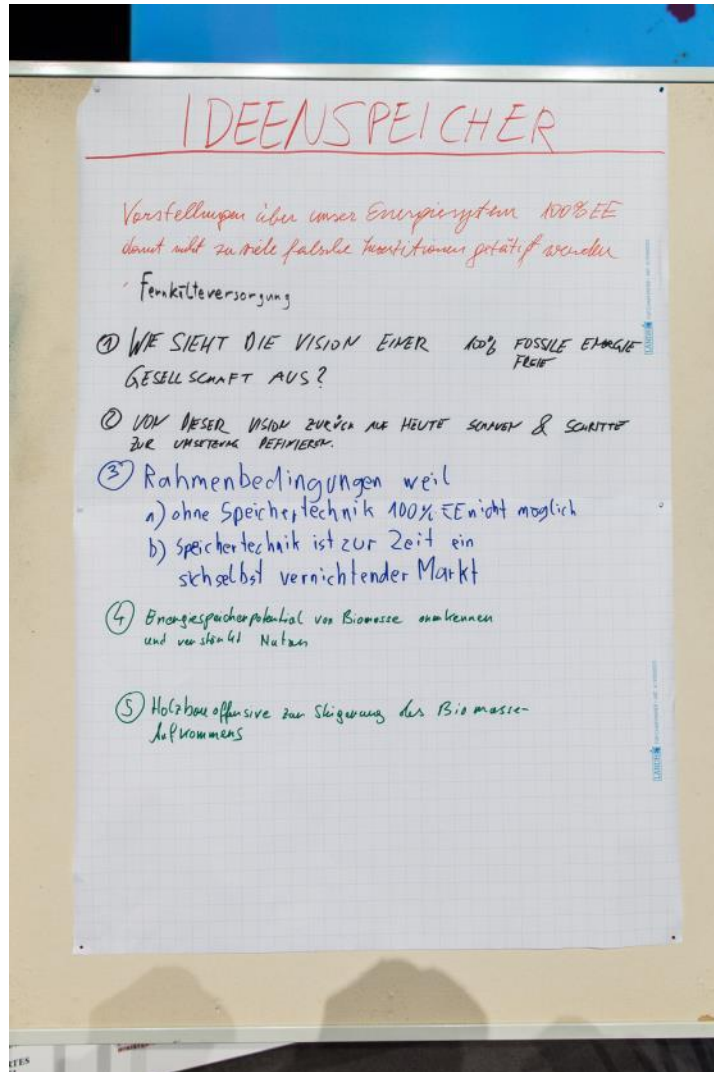 IDEENSPEICHER
Vorstellungen über unser Energiesystem 100% EE
damit nicht zu viele falsche Investitionen getätigt werden
Fernkälteversorgung
① WIE SIEHT DIE VISION EINER 100% FOSSILE ENERGIE
FREIE
GESELLSCHAFT AUS?
② VON DIESER VISION ZURÜCK AUF HEUTE SCHAUEN & SCHRITTE
ZUR UMSETZUNG DEFINIEREN.
③ Rahmenbedingungen weil
a) ohne Speichertechnik 100% EE nicht möglich
b) Speichertechnik ist zur Zeit ein
sich selbst vernichtender Markt
④ Energiespeicherpotential von Biomasse anerkennen
und verstärkt Nutzen
⑤ Holzbauoffensive zur Steigerung des Biomasse-
Aufkommens